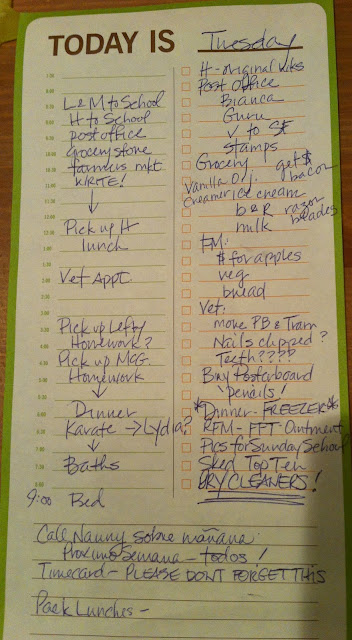 TODAY IS Tuesday
7:00
8:00
9:00
10:00
11:00
12:00
1:00
2:00
3:00
4:00
5:00
6:00
7:00
8:00
L & M to School
H to School
post office
grocery store
farmers mkt
WRITE!
Pick up H
lunch
Vet Appt.
Pick up Lefty
Homework?
Pick up McG
Homework
Dinner
Karate → Lydia?
Baths
9:00 Bed
H - original
Post Office
Bianca
Guru
V to St
stamps
Grocery get $
Vanilla bacon
creamer ice cream
b & R razor
milk blades
FM:
$ for apples
veg
bread
Vet:
move PB & Tram
Nails clipped?
Teeth????
Buy Posterboard
pencils!
*Dinner - FREEZER*
RFM - FFT Ointment
Pics for Sunday School
Sked Top Ten
DRY CLEANERS!
Call Nanny sobre mañana:
Proximo semana - todos!
Timecard - PLEASE DONT FORGET THIS
Pack Lunches -